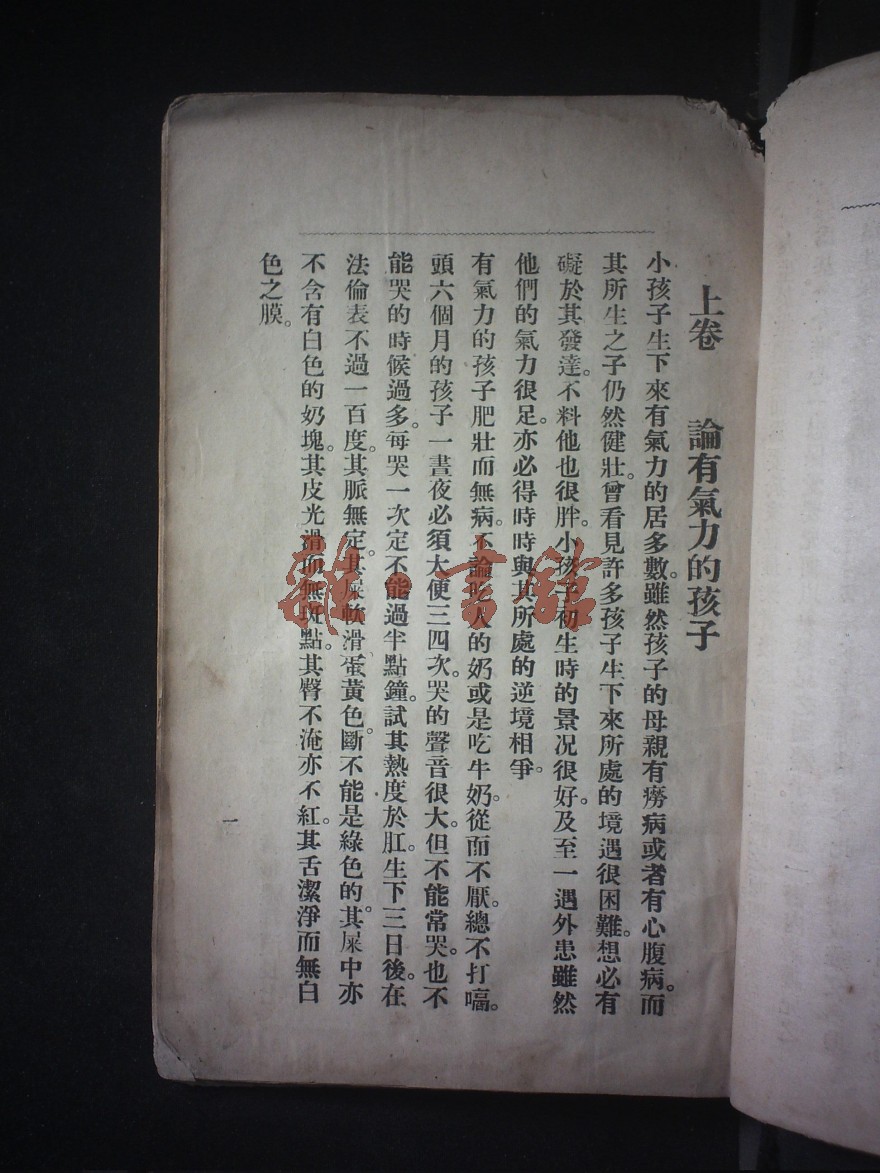 上卷　論有氣力的孩子
小孩子生下來有氣力的居多數。雖然孩子的母親有癆病或者有心腹病。而
其所生之子仍然健壯。曾看見許多孩子生下來所處的境遇很困難。想必有
礙於其發達。不料他也很胖。小孩子初生時的景况很好。及至一遇外患雖然
他們的氣力很足。亦必得時時與其所處的逆境相爭。
有氣力的孩子肥壯而無病。不論吃人的奶或是吃牛奶。從而不厭。總不打嗝。
頭六個月的孩子一晝夜必須大便三四次。哭的聲音很大。但不能常哭。也不
能哭的時候過多。每哭一次定不能過半點鐘。試其熱度於肛。生下三日後。在
法倫表不過一百度。其脈無定。其屎軟滑蛋黃色。斷不能是綠色的。其屎中亦
不含有白色的奶塊。其皮光滑而無斑點。其臀不淹亦不紅。其舌潔淨而無白
色之膜。
一
雜·書館